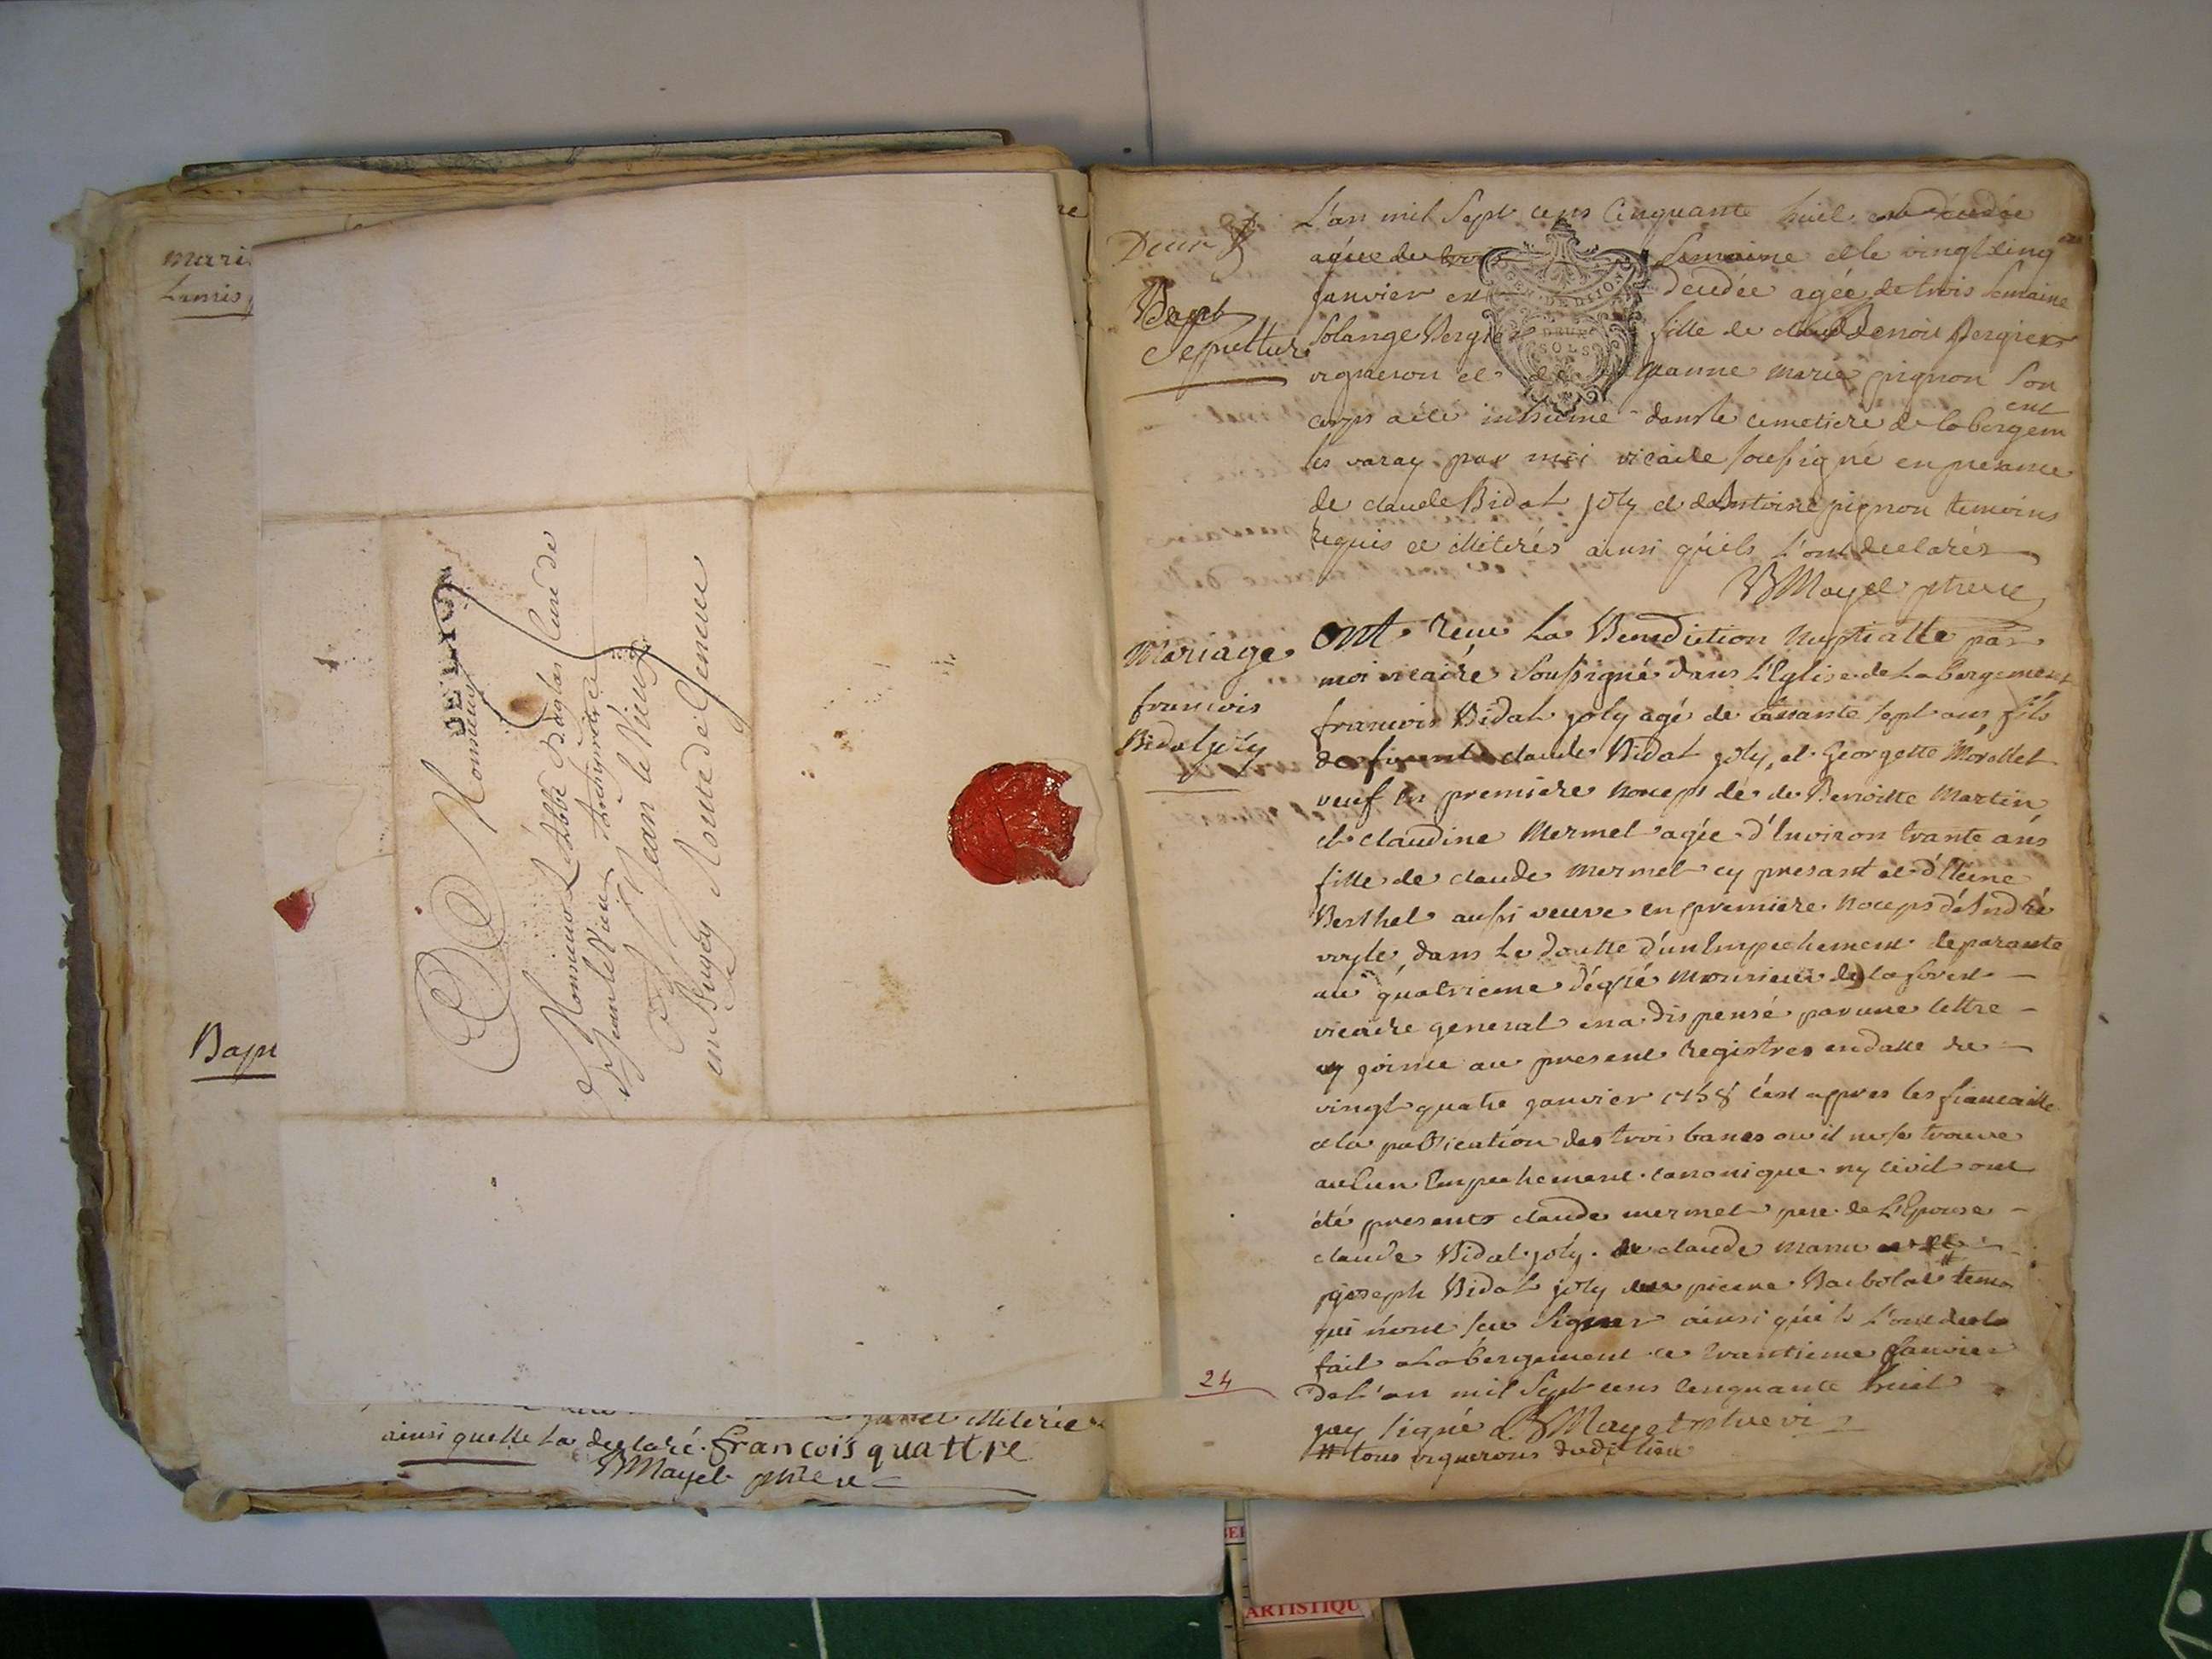 mari
Bapt
DE LYON
Monsieur
Monsieur L'abbé Daglas Curé de
St Jean le Vieux Archiprêtre
A St Jean le Vieux
en Bugey Route de Geneve
illiterée
ainsi quelle la declaré. francois quattre
Mayet ptre
Bapt
Sepultur
L'an mil Sept cens Cinquante huit est decedée
agée de trois Semaine et le vingt cinq
janvier est decedée agée de trois Semaine
Solange Vergier fille de claude Benoit Vergier
vigneron et de jeanne marie pignon Son
corps a été inhumé dans le cemetiere de labergement
les varay par moi vicaire soussigné en presance
de claude Bidal joly et d'Antoine pignon temoins
Requis et illiterés ainsi qu'ils l'ont declarés
Mayet ptre
GEN. DE DIJON
DEUX
SOLS
Mariage
francois
Bidal joly
Ont reçu La Benediction Nuptialle par
moi vicaire Soussigné dans L'Eglise de Labergement
francois Bidal joly agé de sept ans fils
de claude Bidal joly, et Georgette Morellet
veuf en premiere noceps de de Benoitte Martin
et claudine Mermet agée d'Environ trante ans
fille de claude Mermet cy presant et d'
Berthet aussi veuve en premiere noceps d'André
dans le doutte d'un Empechement de parante
au quatrieme dégré Monsieur de la forest
vicaire general en a dispensé par une lettre
cy jointe au present Registres en datte du
vingt quatre janvier 1758 c'est appres les fiancaille
et la publication des trois bancs ou il ne se trouve
aucun Empechement canonique ny civil ont
été presents claude mermet pere de L'Epouse
claude Bidal joly. claude manu
joseph Bidal joly pierre temo
qui n'ont sceu Signer ainsi qu'ils l'ont decla
fait a Labergement ce trantieme Janvier
24
de l'an mil Sept cens Cinquante huit
jay signé Mayet ptre vi
# tous vignerons dudit lieu
ARTISTIQU